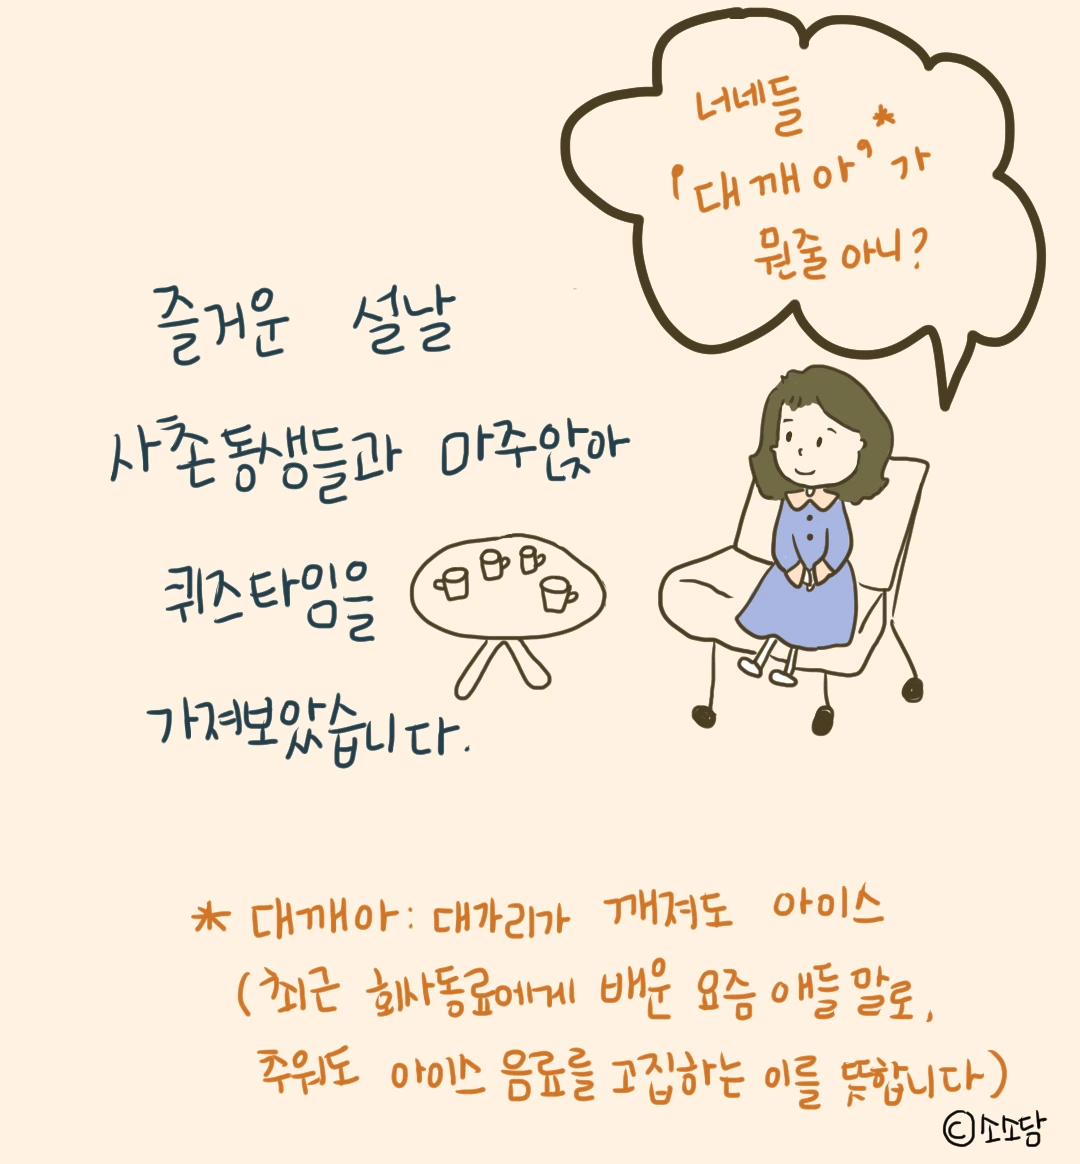 너네들
'대깨아'*가
뭔줄 아니?
즐거운 설날
사촌동생들과 마주앉아
퀴즈타임을
가져보았습니다.
* 대깨아: 대가리가 깨져도 아이스
(최근 회사동료에게 배운 요즘 애들 말로,
추워도 아이스 음료를 고집하는 이를 뜻합니다)
©소소담